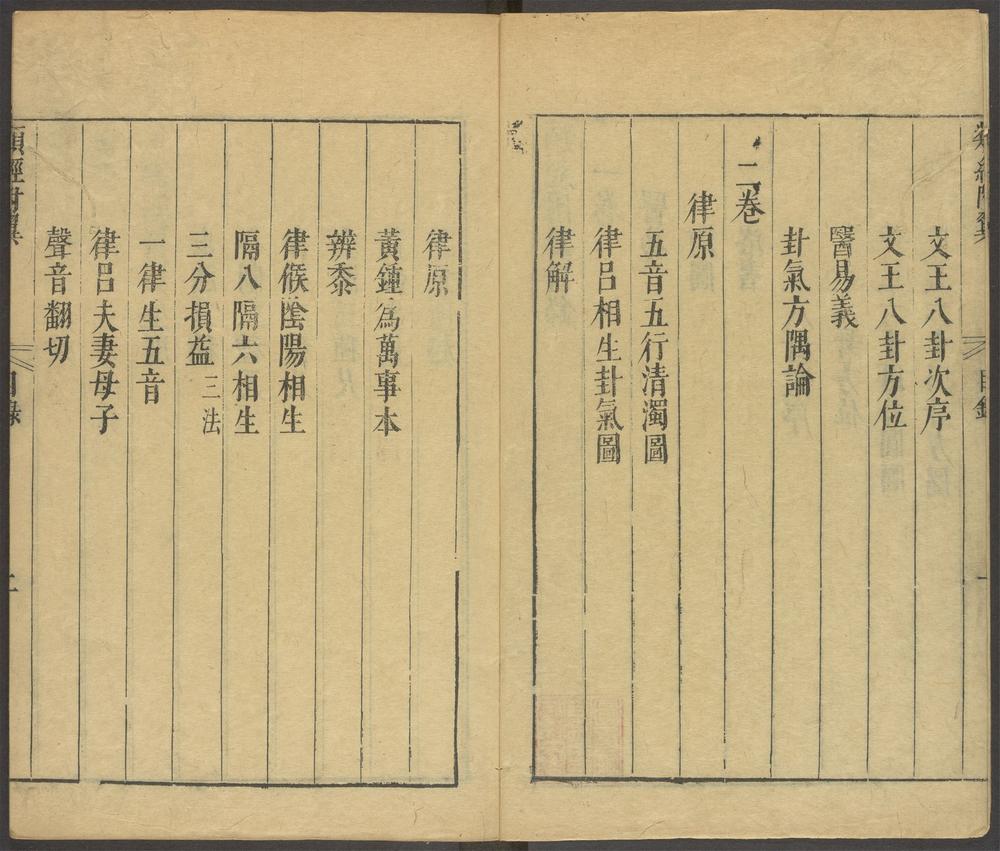 類經附翼
目錄
文王八卦次序
文王八卦方位
醫易義
卦氣方隅論
二卷
律原
五音五行清濁圖
律呂相生卦氣圖
律解
律原
黃鍾為萬事本
辨黍
律候陰陽相生
隔八隔六相生
三分損益三法
一律生五音
律呂夫妻母子
聲音翻切
類經附翼
目錄